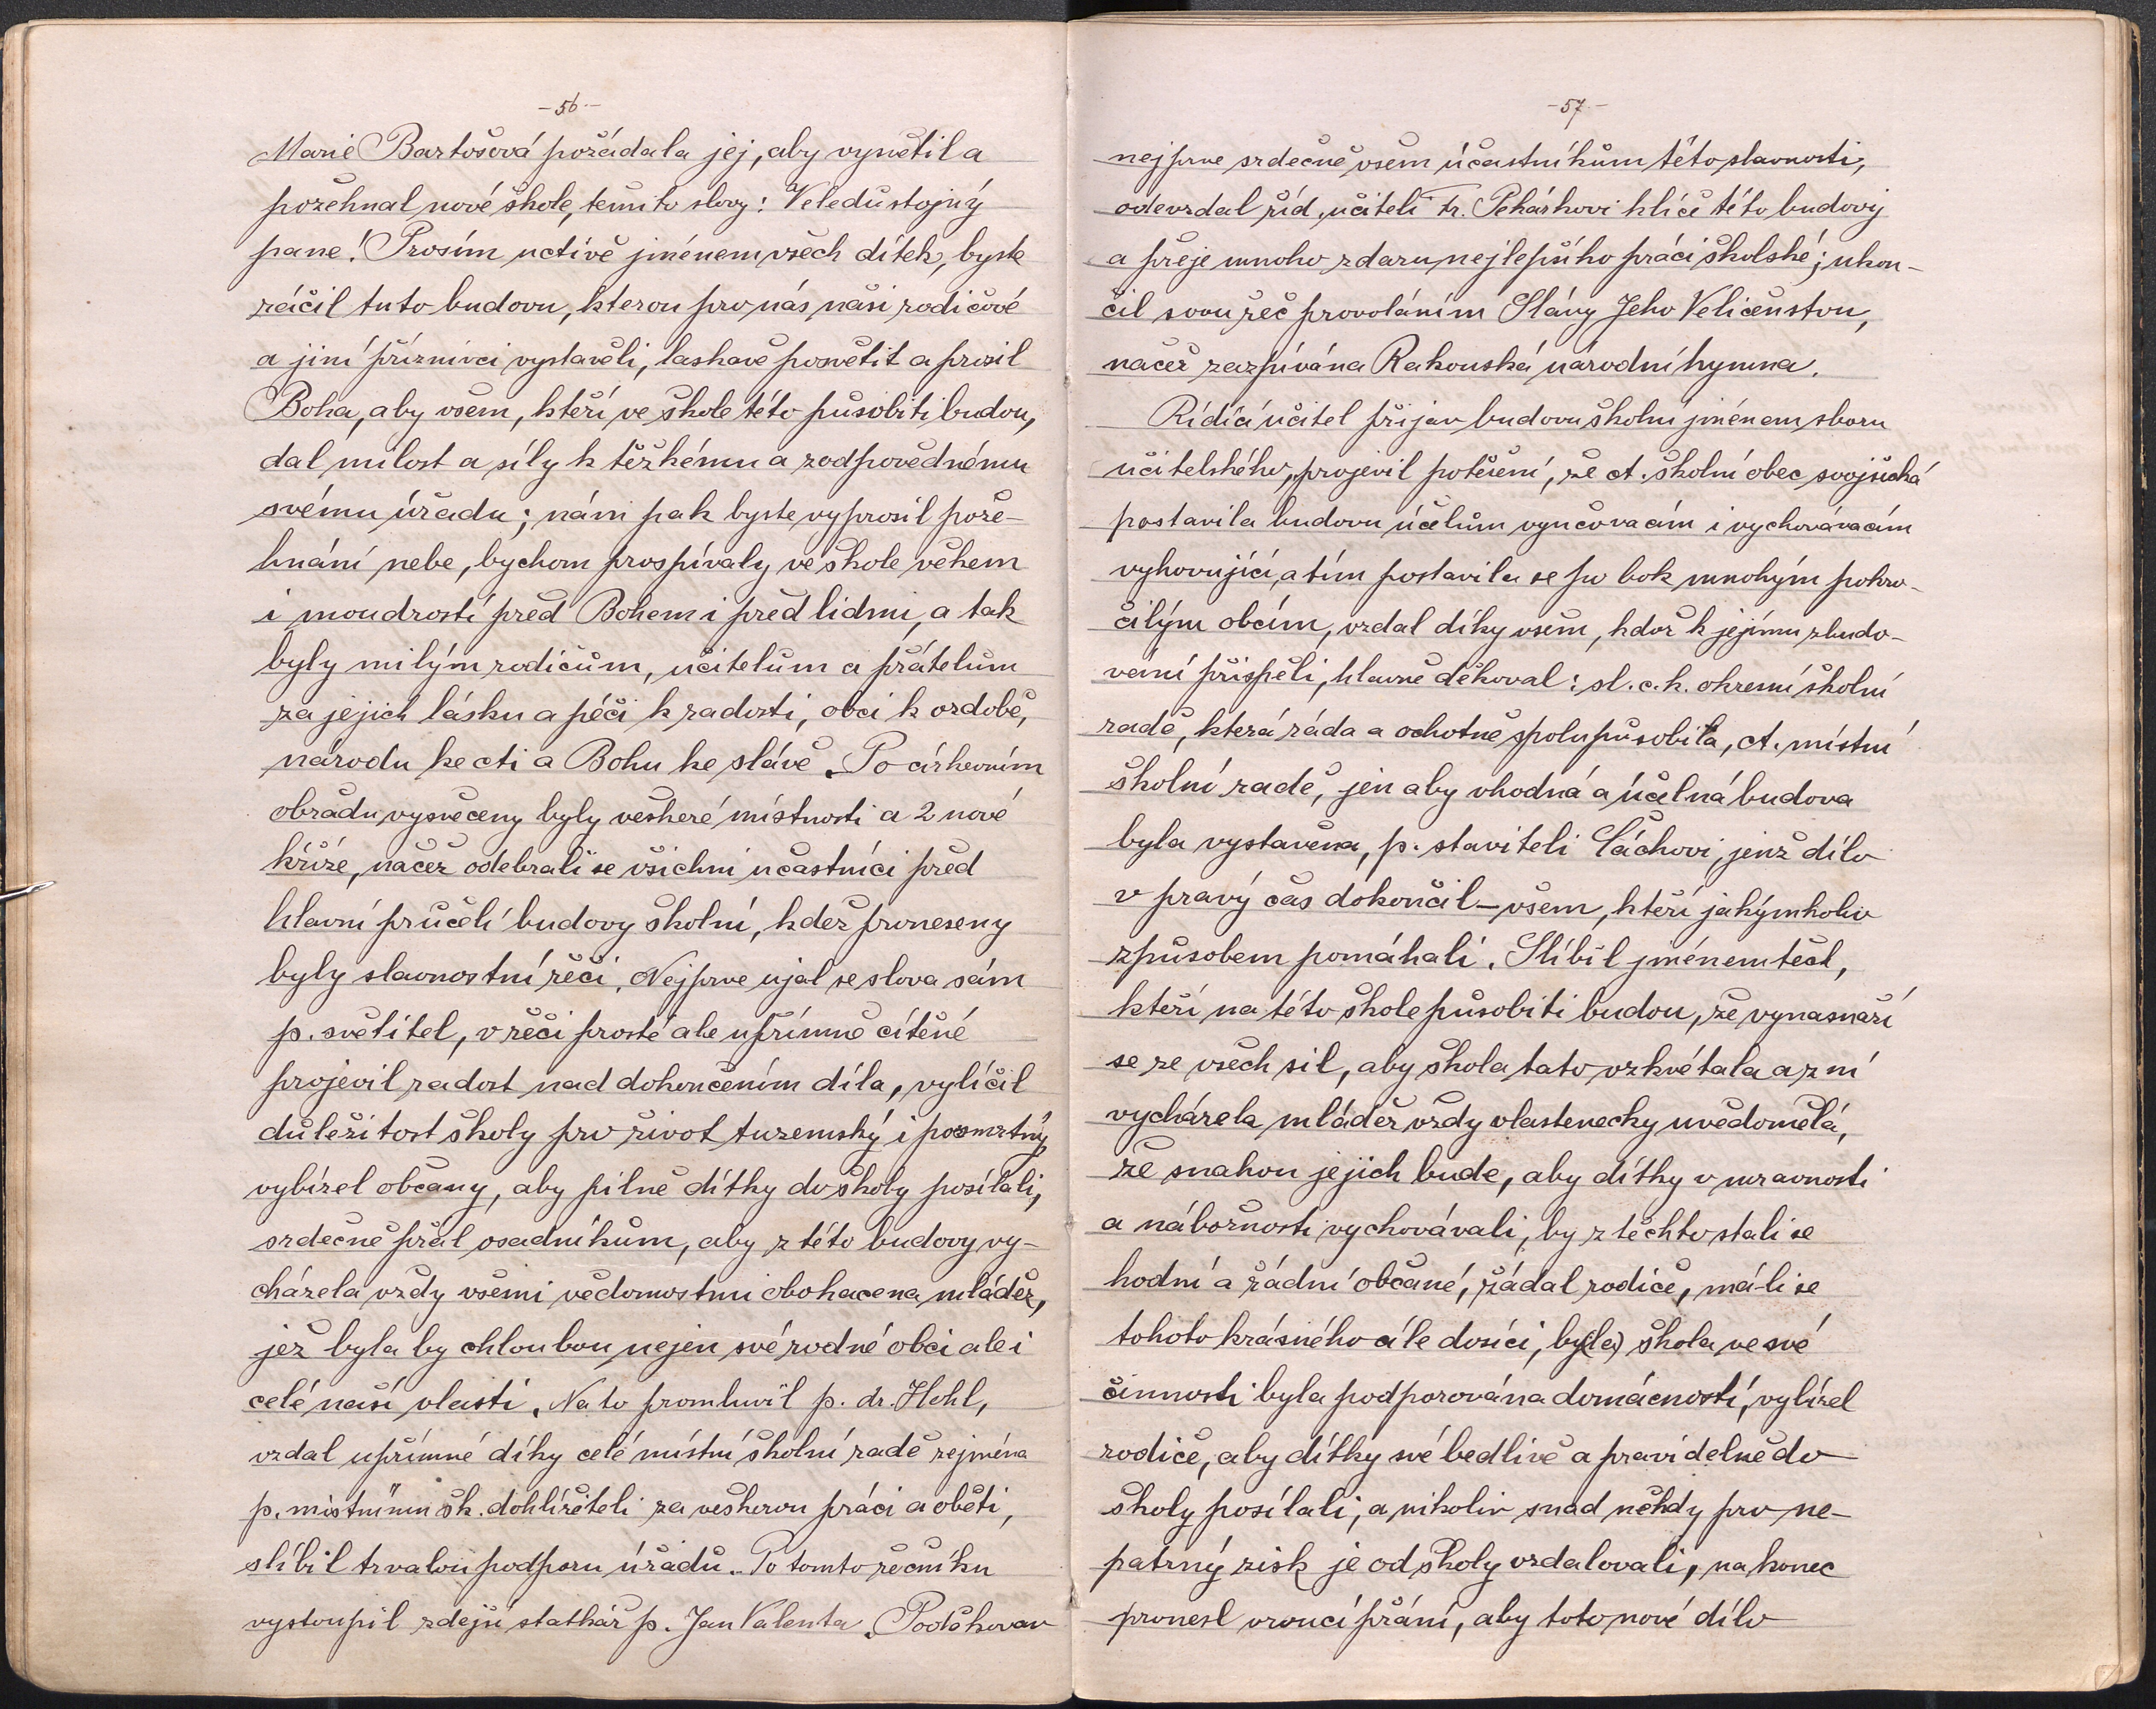 -56-
Marie Bartošová požádala jej, aby vysvětil a
požehnal nové škole, těmito slovy: Veledůstojný
pane! Prosím uctivě jménem všech dítek, byste
ráčil tuto budovu, kterou pro nás naši rodičové
a jiní příznivci vystavěli, laskavě posvětit a prosil
Boha, aby všem, kteří ve škole této působiti budou,
dal milost a síly k těžkému a zodpovědnému
svému úřadu; nám pak byste vyprosil pože-
hnání nebe, bychom prospívaly ve škole věkem
i moudrostí před Bohem i před lidmi, a tak
byly milým rodičům, učitelům a přátelům
za jejich lásku a péči k radosti, obci k ozdobě,
národu ke cti a Bohu ke slávě. Po církevním
obřadu vysvěceny byly veškeré místnosti a 2 nové
kříže, načež odebrali se všichni účastníci před
hlavní průčelí budovy školní, kdež proneseny
byly slavnostní řeči. Nejprve ujal se slova sám
p. světitel, v řeči prosté ale upřímně cítěné
projevil radost nad dokončením díla, vylíčil
důležitost školy pro život tuzemský i posmrtný,
vybízel občany, aby pilně dítky do školy posílali,
srdečně přál osadníkům, aby z této budovy vy-
cházela vždy všemi vědomostmi obohacena mládež,
jež byla by chloubou nejen své rodné obci ale i
celé naší vlasti. Na to promluvil p. dr. Hohl,
vzdal upřímné díky celé místní školní radě zejména
p. místnímu šk. dohlížiteli za veškerou práci a oběti,
slíbil trvalou podporu úřadů. Po tomto řečníku
vystoupil zdejší statkář p. Jan Valenta. Poděkovav
-57-
nejprve srdečně všem účastníkům této slavnosti,
odevzdal říd. učiteli Fr. Pekárkovi klíče této budovy
a přeje mnoho zdaru nejlepšího práci školské; ukon-
čil svou řeč provoláním Slávy Jeho Veličenstvu,
načež zazpívána Rakouská národní hymna.
Řídící učitel přijav budovu školní jménem sboru
učitelského, projevil potěšení, že ct. školní obec svojšická
postavila budovu účelům vyučovacím i vychovávacím
vyhovující, a tím postavila se po bok mnohým pokro-
čilým obcím, vzdal díky všem, kdož k jejímu zbudo-
vání přispěli, hlavně děkoval: sl. c. k. okresní školní
radě, která ráda a ochotně spolupůsobila, ct. místní
školní radě, jen aby vhodná a účelná budova
byla vystavena, p. staviteli Šáchovi, jenž dílo
v pravý čas dokončil - všem, kteří jakýmkoliv
způsobem pomáhali. Slíbil jménem těch,
kteří na této škole působiti budou, že vynasnaží
se ze všech sil, aby škola tato vzkvétala a z ní
vycházela mládež vždy vlastenecky uvědomělá,
že snahou jejich bude, aby dítky v mravnosti
a nábožnosti vychovávali, by z těchto stali se
hodní a řádní občané, žádal rodiče, má-li se
tohoto krásného cíle dosíci, by(la) škola ve své
činnosti byla podporována domácností, vybízel
rodiče, aby dítky své bedlivě a pravidelně do
školy posílali, a nikoliv snad někdy pro ne-
patrný zisk je od školy vzdalovali, na konec
pronesl vroucí přání, aby toto nové dílo